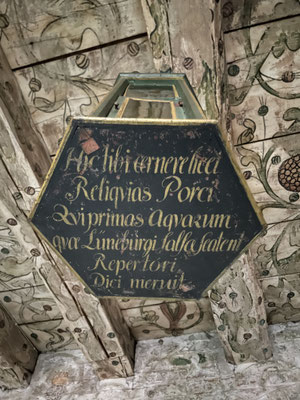 Hic tibi cernere licet
Reliqvias Porci
Qvi primas Aqvarum
quæ Lüneburgi salsæ scatent
Repertori
Dici meruit